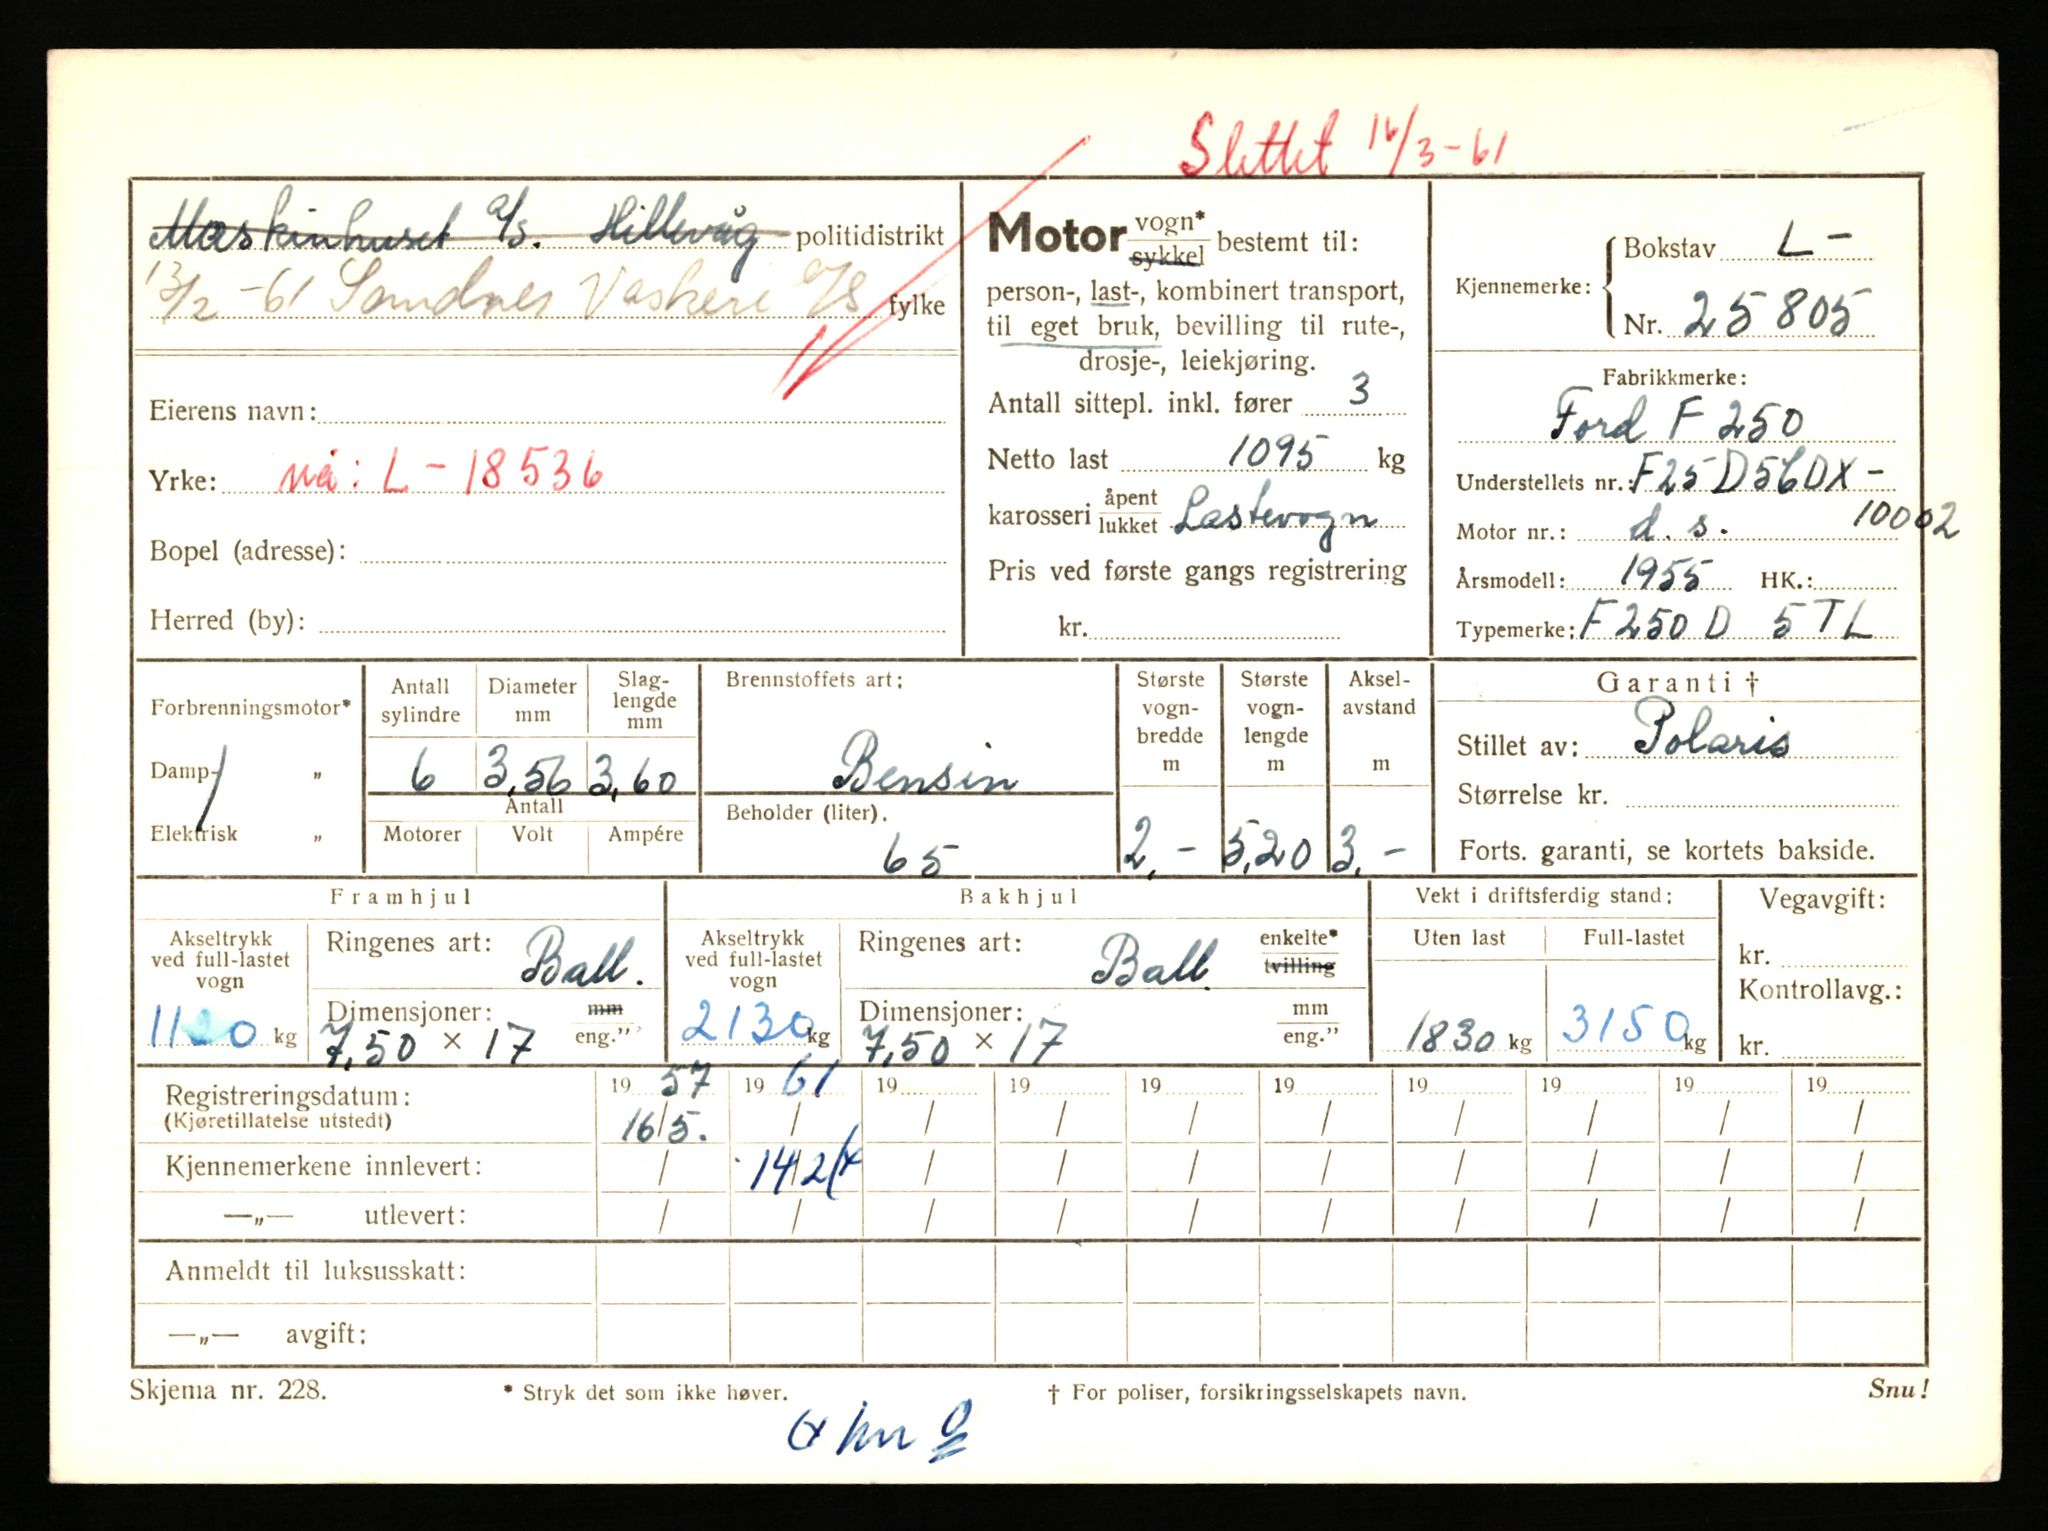 Slettet 16/3-61
Maskinhuset a/s. Hillevåg politidistrikt
13/2-61 Sandnes Vaskeri A/S fylke
Eierens navn:
Yrke: nå: L-18536
Bopel (adresse):
Herred (by):
Motor vogn* sykkel bestemt til:
person-, last-, kombinert transport,
til eget bruk, bevilling til rute-,
drosje-, leiekjøring.
Antall sittepl. inkl. fører 3
Netto last 1095 kg
karosseri åpent lukket Lastevogn
Pris ved første gangs registrering
kr.
Kjennemerke: Bokstav L-
Nr. 25805
Fabrikkmerke:
Ford F 250
Understellets nr.: F25D5CDX-
10002
Motor nr.: d.s.
Årsmodell: 1955 HK.:
Typemerke: F250D 5TL
Forbrenningsmotor*
Damp- „
Elektrisk „
Antall sylindre Diameter mm Slag-lengde mm
6 3,56 3,60
Antall
Motorer Volt Ampére
Brennstoffets art:
Bensin
Beholder (liter).
65
Største vogn-bredde m Største vogn-lengde m Aksel-avstand m
2,- 5,20 3,-
Garanti †
Stillet av: Polaris
Størrelse kr.
Forts. garanti, se kortets bakside.
Framhjul
Akseltrykk ved full-lastet vogn
kg
Ringenes art: Ball.
Dimensjoner: mm eng."
7,50 × 17
Bakhjul
Akseltrykk ved full-lastet vogn
2130 kg
Ringenes art: Ball. enkelte* tvilling
Dimensjoner: mm eng."
7,50 × 17
Vekt i driftsferdig stand:
Uten last Full-lastet
1830 kg 3150 kg
Vegavgift:
kr.
Kontrollavg.:
kr.
19 57 19 61 19 19 19 19 19 19 19 19
Registreringsdatum: 16/5. / / / / / / / / /
(Kjøretillatelse utstedt)
Kjennemerkene innlevert: / 14/2 / / / / / / / /
—„— utlevert: / / / / / / / / / /
Anmeldt til luksusskatt:
—„— avgift:
Skjema nr. 228. * Stryk det som ikke høver. † For poliser, forsikringsselskapets navn. Snu!